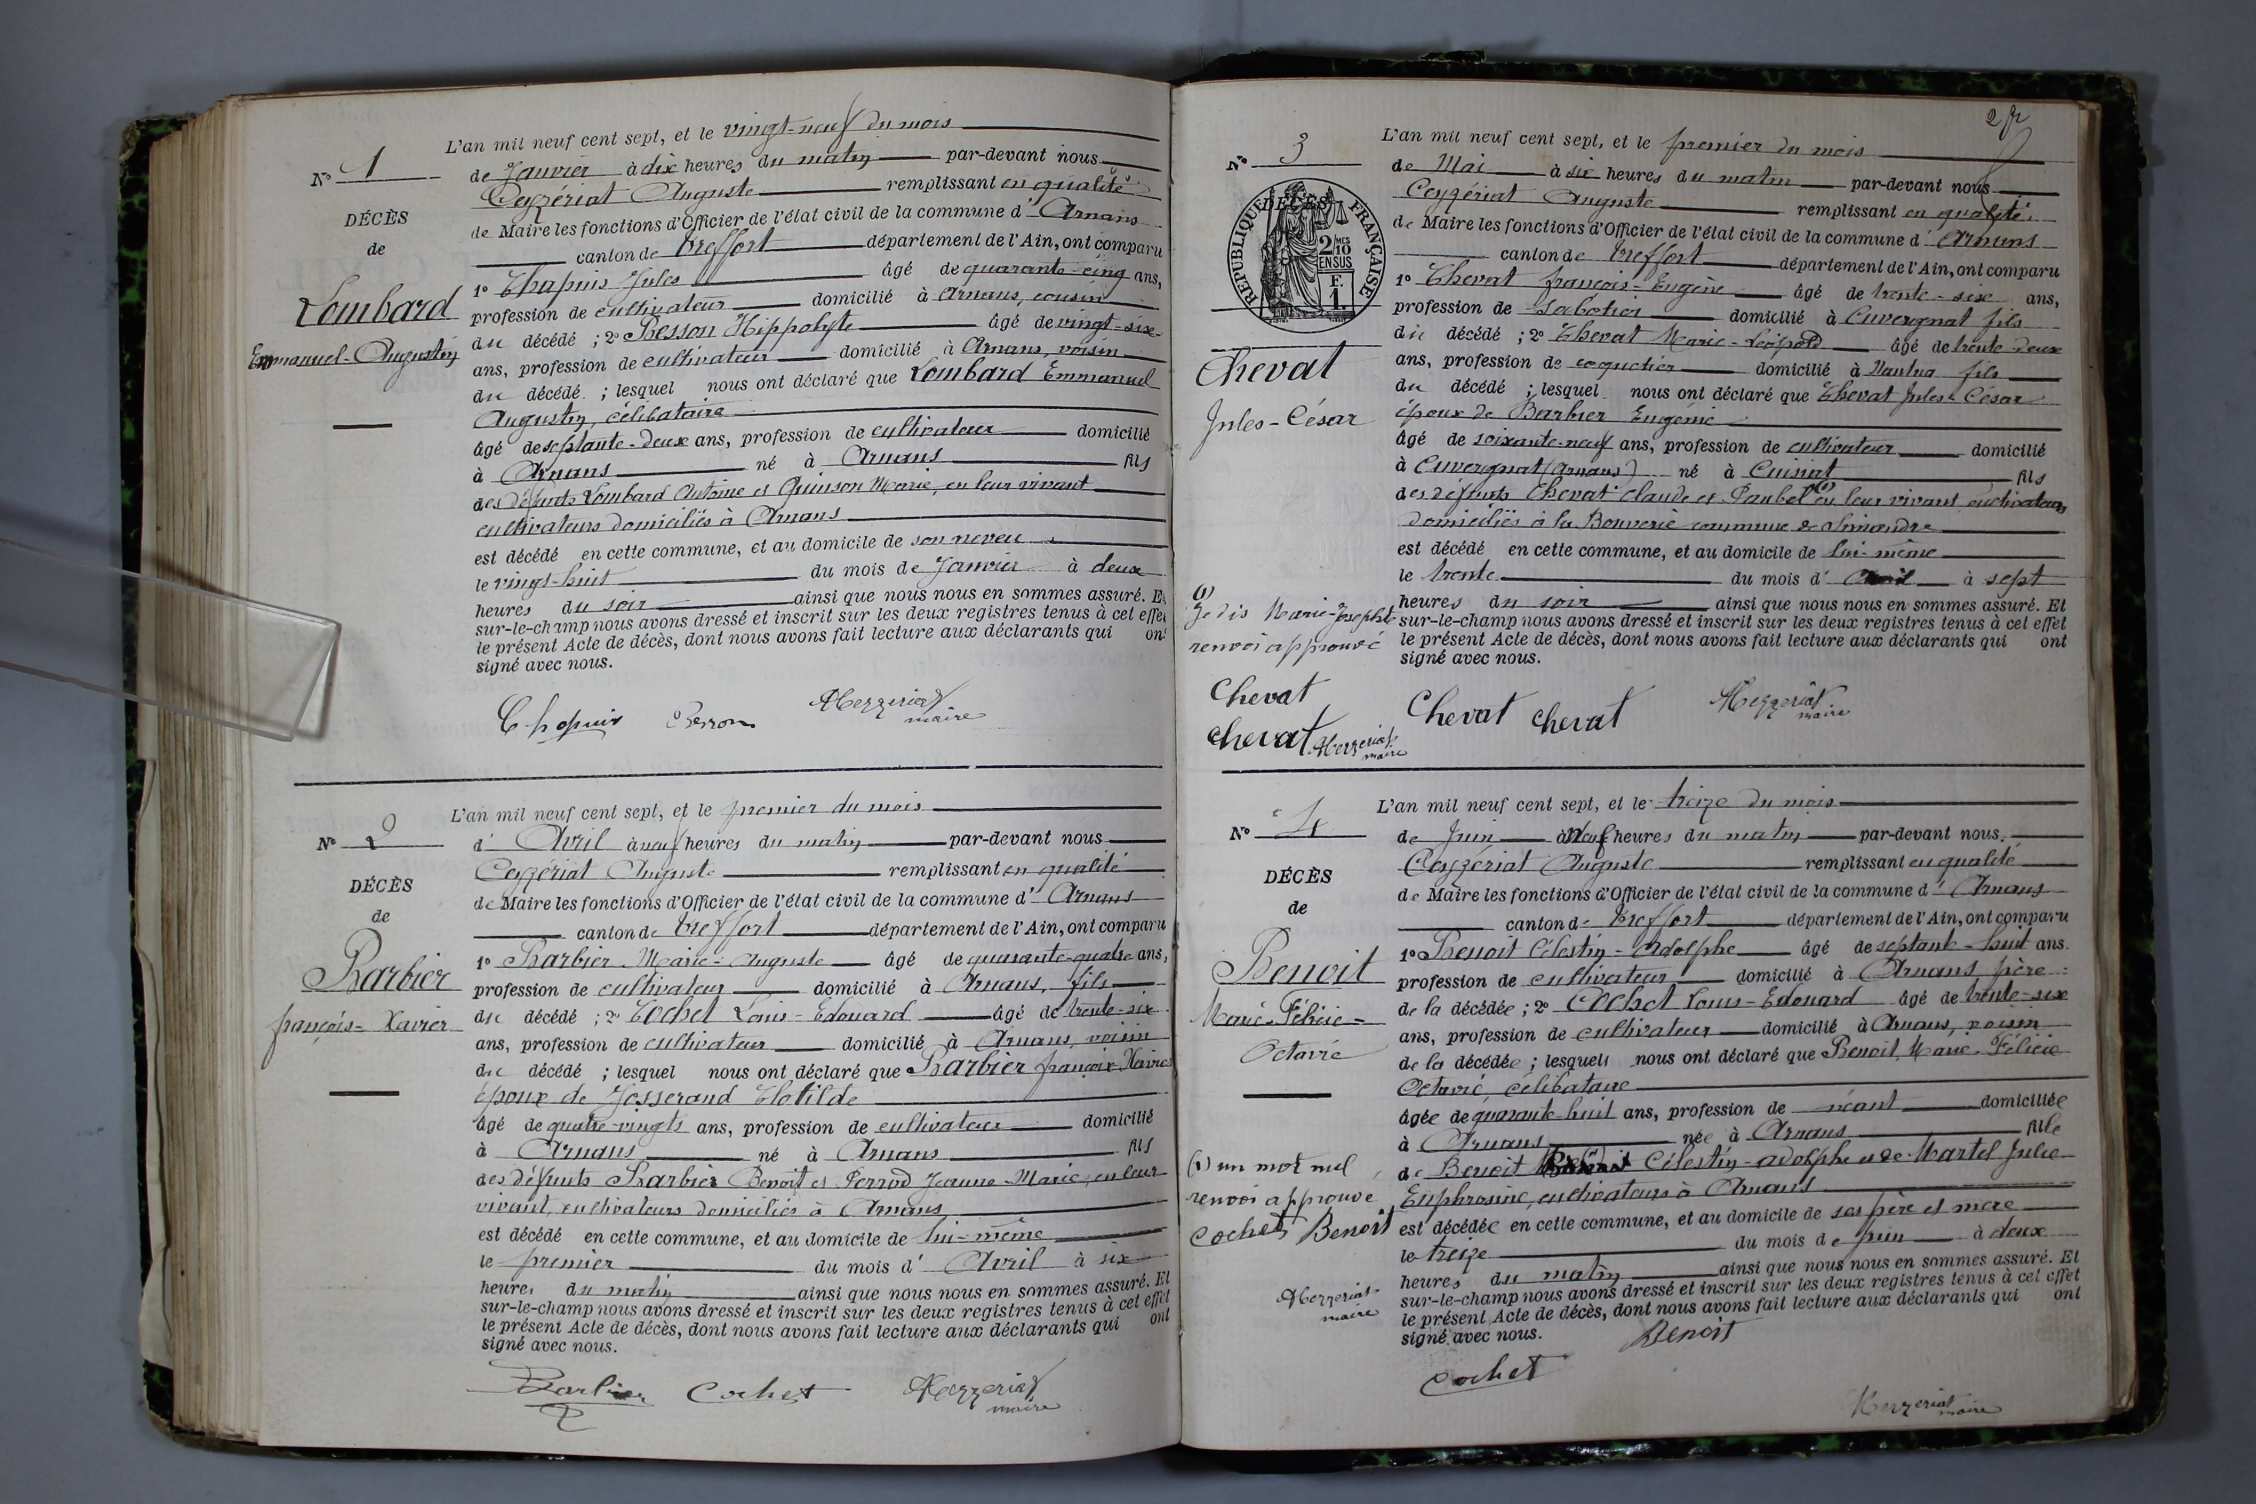 L'an mil neuf cent sept, et le vingt-neuf du mois
N° 1
de Janvier à dix heures du matin par-devant nous
Ceyzériat Auguste remplissant en qualité
DÉCÈS
de Maire les fonctions d'Officier de l'état civil de la commune d' Arnans
de
canton de Treffort département de l'Ain, ont comparu
1° Chapuis Jules âgé de quarante-cinq ans,
Lombard
profession de cultivateur domicilié à Arnans, cousin
Emmanuel-Augustin
du décédé ; 2° Besson Hippolyte âgé de vingt-six
ans, profession de cultivateur domicilié à Arnans, voisin
du décédé ; lesquel nous ont déclaré que Lombard Emmanuel
Augustin, célibataire
âgé de septante-deux ans, profession de cultivateur domicilié
à Arnans né à Arnans fils
des défunts Lombard Antoine et Quinson Marie, en leur vivant
cultivateurs domiciliés à Arnans
est décédé en cette commune, et au domicile de son neveu
le vingt-huit du mois de Janvier à deux
heures du soir ainsi que nous nous en sommes assuré. Et
sur-le-champ nous avons dressé et inscrit sur les deux registres tenus à cet effet
le présent Acte de décès, dont nous avons fait lecture aux déclarants qui ont
signé avec nous.
Chapuis Besson ACeyzériat
maire
L'an mil neuf cent sept, et le premier du mois
N° 2
d' Avril à neuf heures du matin par-devant nous
Ceyzériat Auguste remplissant en qualité
DÉCÈS
de Maire les fonctions d'Officier de l'état civil de la commune d' Arnans
de
canton de Treffort département de l'Ain, ont comparu
Barbier
1° Barbier Marie-Auguste âgé de quarante-quatre ans,
profession de cultivateur domicilié à Arnans, fils
françois-Xavier
du décédé ; 2° Cochet Louis-Edouard âgé de trente-six
ans, profession de cultivateur domicilié à Arnans, voisin
du décédé ; lesquel nous ont déclaré que Barbier françois Xavier
époux de Josserand Clotilde
âgé de quatre-vingts ans, profession de cultivateur domicilié
à Arnans né à Arnans fils
des défunts Barbier Benoit et Perrod Jeanne-Marie, en leur
vivant, cultivateurs domiciliés à Arnans
est décédé en cette commune, et au domicile de lui-même
le premier du mois d' Avril à six
heures du matin ainsi que nous nous en sommes assuré. Et
sur-le-champ nous avons dressé et inscrit sur les deux registres tenus à cet effet
le présent Acte de décès, dont nous avons fait lecture aux déclarants qui ont
signé avec nous.
Barbier Cochet ACeyzériat
maire
L'an mil neuf cent sept, et le premier du mois
N° 3
de Mai à six heures du matin par-devant nous
Ceyzériat Auguste remplissant en qualité
DÉCÈS
RÉPUBLIQUE FRANÇAISE
2 MES
10
EN SUS
F.
1.
de Maire les fonctions d'Officier de l'état civil de la commune d' Arnans
canton de Treffort département de l'Ain, ont comparu
1° Chevat françois-Eugène âgé de trente-six ans,
profession de Sabotier domicilié à Cuvergnat fils
du décédé ; 2° Chevat Marie-Léopold âgé de trente-deux
Chevat
ans, profession de coquetier domicilié à Nantua fils
du décédé ; lesquel nous ont déclaré que Chevat Jules-César
Jules-César
époux de Barbier Eugénie
âgé de soixante-neuf ans, profession de cultivateur domicilié
à Cuvergnat (Arnans) né à Cuisiat fils
des défunts Chevat Claude et Paubel (1) en leur vivant cultivateurs
domiciliés à la Bouverie commune de Simandre
est décédé en cette commune, et au domicile de lui-même
le trente du mois d' Avril à sept
(1)
Je dis Marie-Josephte
renvoi approuvé
heures du soir ainsi que nous nous en sommes assuré. Et
sur-le-champ nous avons dressé et inscrit sur les deux registres tenus à cet effet
le présent Acte de décès, dont nous avons fait lecture aux déclarants qui ont
signé avec nous.
Chevat
Chevat ACeyzériat
maire
Chevat Chevat ACeyzériat
maire
L'an mil neuf cent sept, et le treize du mois
N° 4
de Juin à Neuf heures du matin par-devant nous
Ceyzériat Auguste remplissant en qualité
DÉCÈS
de Maire les fonctions d'Officier de l'état civil de la commune d' Arnans
de
canton de Treffort département de l'Ain, ont comparu
Benoit
1° Benoit Célestin-Adolphe âgé de septante-huit ans.
profession de cultivateur domicilié à Arnans, père
Marie-Félicie-
de la décédée ; 2° Cochet Louis-Edouard âgé de trente-six
Octavie
ans, profession de cultivateur domicilié à Arnans, voisin
de la décédée ; lesquels nous ont déclaré que Benoit, Marie-Félicie
Octavie, célibataire
âgée de quarante-huit ans, profession de néant domiciliée
à Arnans née à Arnans fille
(1) un mot nul
renvoi approuvé
Cochet Benoit
ACeyzériat
maire
de Benoit Célestin-Adolphe et de Martel Julie
Euphrosine, cultivateurs à Arnans
est décédée en cette commune, et au domicile de ses père et mère
le treize du mois de juin à deux
heures du matin ainsi que nous nous en sommes assuré. Et
sur-le-champ nous avons dressé et inscrit sur les deux registres tenus à cet effet
le présent Acte de décès, dont nous avons fait lecture aux déclarants qui ont
signé avec nous.
Benoit
Cochet
ACeyzériat
maire